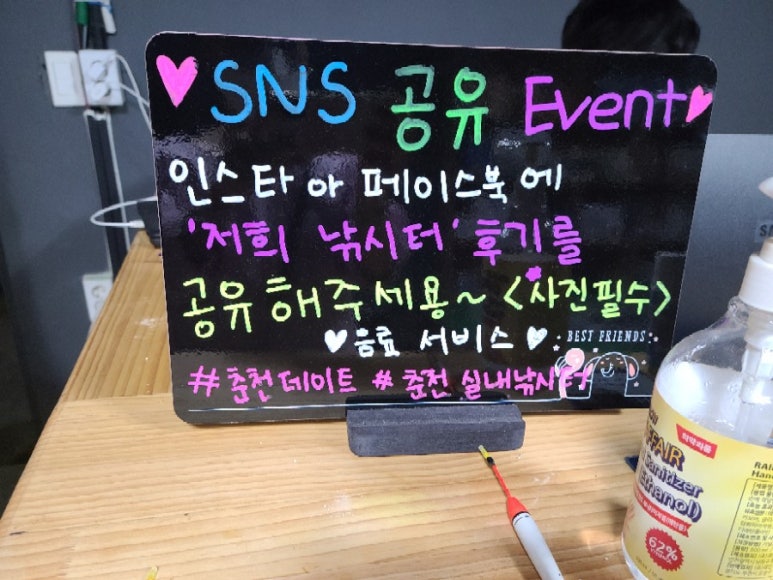 SNS 공유 Event
인스타 아 페이스북에
'저희 낚시터' 후기를
공유해주세용~ <사진필수>
음료 서비스
BEST FRIENDS
#춘천데이트 #춘천 실내낚시터
희석하품
FFAIR
Sanitizer
Ethanol)
62%